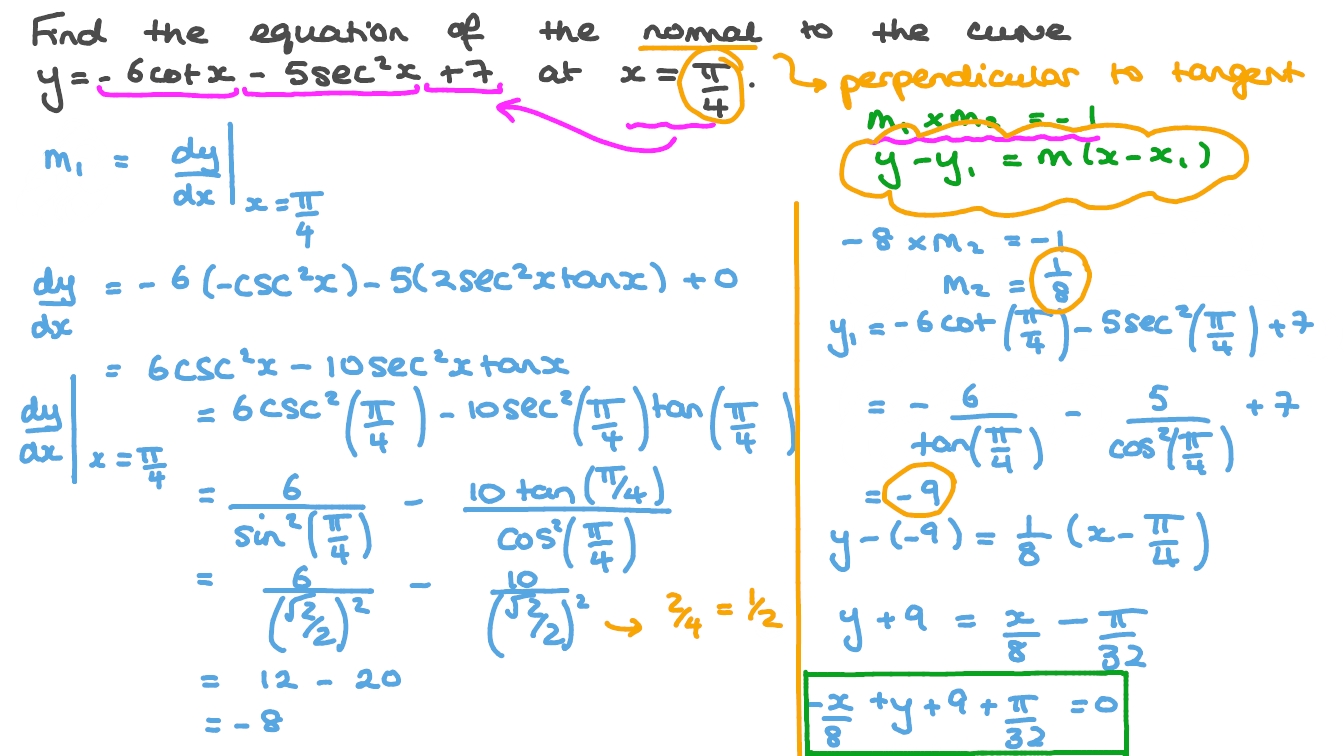 Find the equation of the normal to the curve
y = - 6cotx - 5sec²x + 7 at x = π/4.
→ perpendicular to tangent
m₁ × m₂ = -1
y - y₁ = m(x - x₁)
m₁ = dy/dx | x = π/4
dy/dx = - 6(-csc²x) - 5(2sec²xtanx) + 0
= 6csc²x - 10sec²xtanx
dy/dx | x = π/4 = 6csc²(π/4) - 10sec²(π/4)tan(π/4)
= 6/sin²(π/4) - 10tan(π/4)/cos²(π/4)
= 6/(√2/2)² - 10/(√2/2)² → 2/4 = 1/2
= 12 - 20
= - 8
- 8 × m₂ = -1
m₂ = 1/8
y₁ = -6cot(π/4) - 5sec²(π/4) + 7
= - 6/tan(π/4) - 5/cos²(π/4) + 7
= -9
y - (-9) = 1/8 (x - π/4)
y + 9 = x/8 - π/32
-x/8 + y + 9 + π/32 = 0